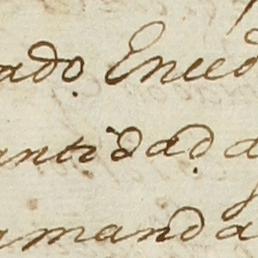 ado Enced
antidad a
amanda